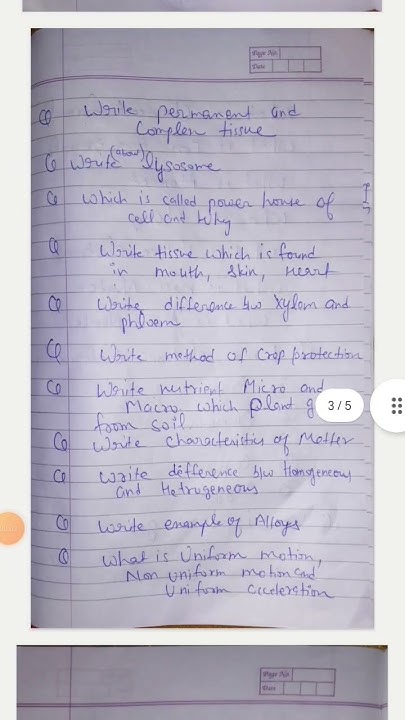 Page No.
Date
Q Write permanent and
Complen tissue
Q Write (about) lysosome
Q Which is called power house of
cell and Why
Q Write tissue which is found
in mouth, skin, Heart
Q Write difference b/w Xylom and
phloem
Q Write method of Crop protection
Q Write nutrient Micro and
Macro which plant g
3 / 5
from soil
Q Write Characteristics of Matter
Q Write difference b/w Homogeneous
and Hetrogeneous
Q Write example of Alloys
Q What is Uniform motion,
Non uniform motion and
Uniform acceleration
Page No.
Date